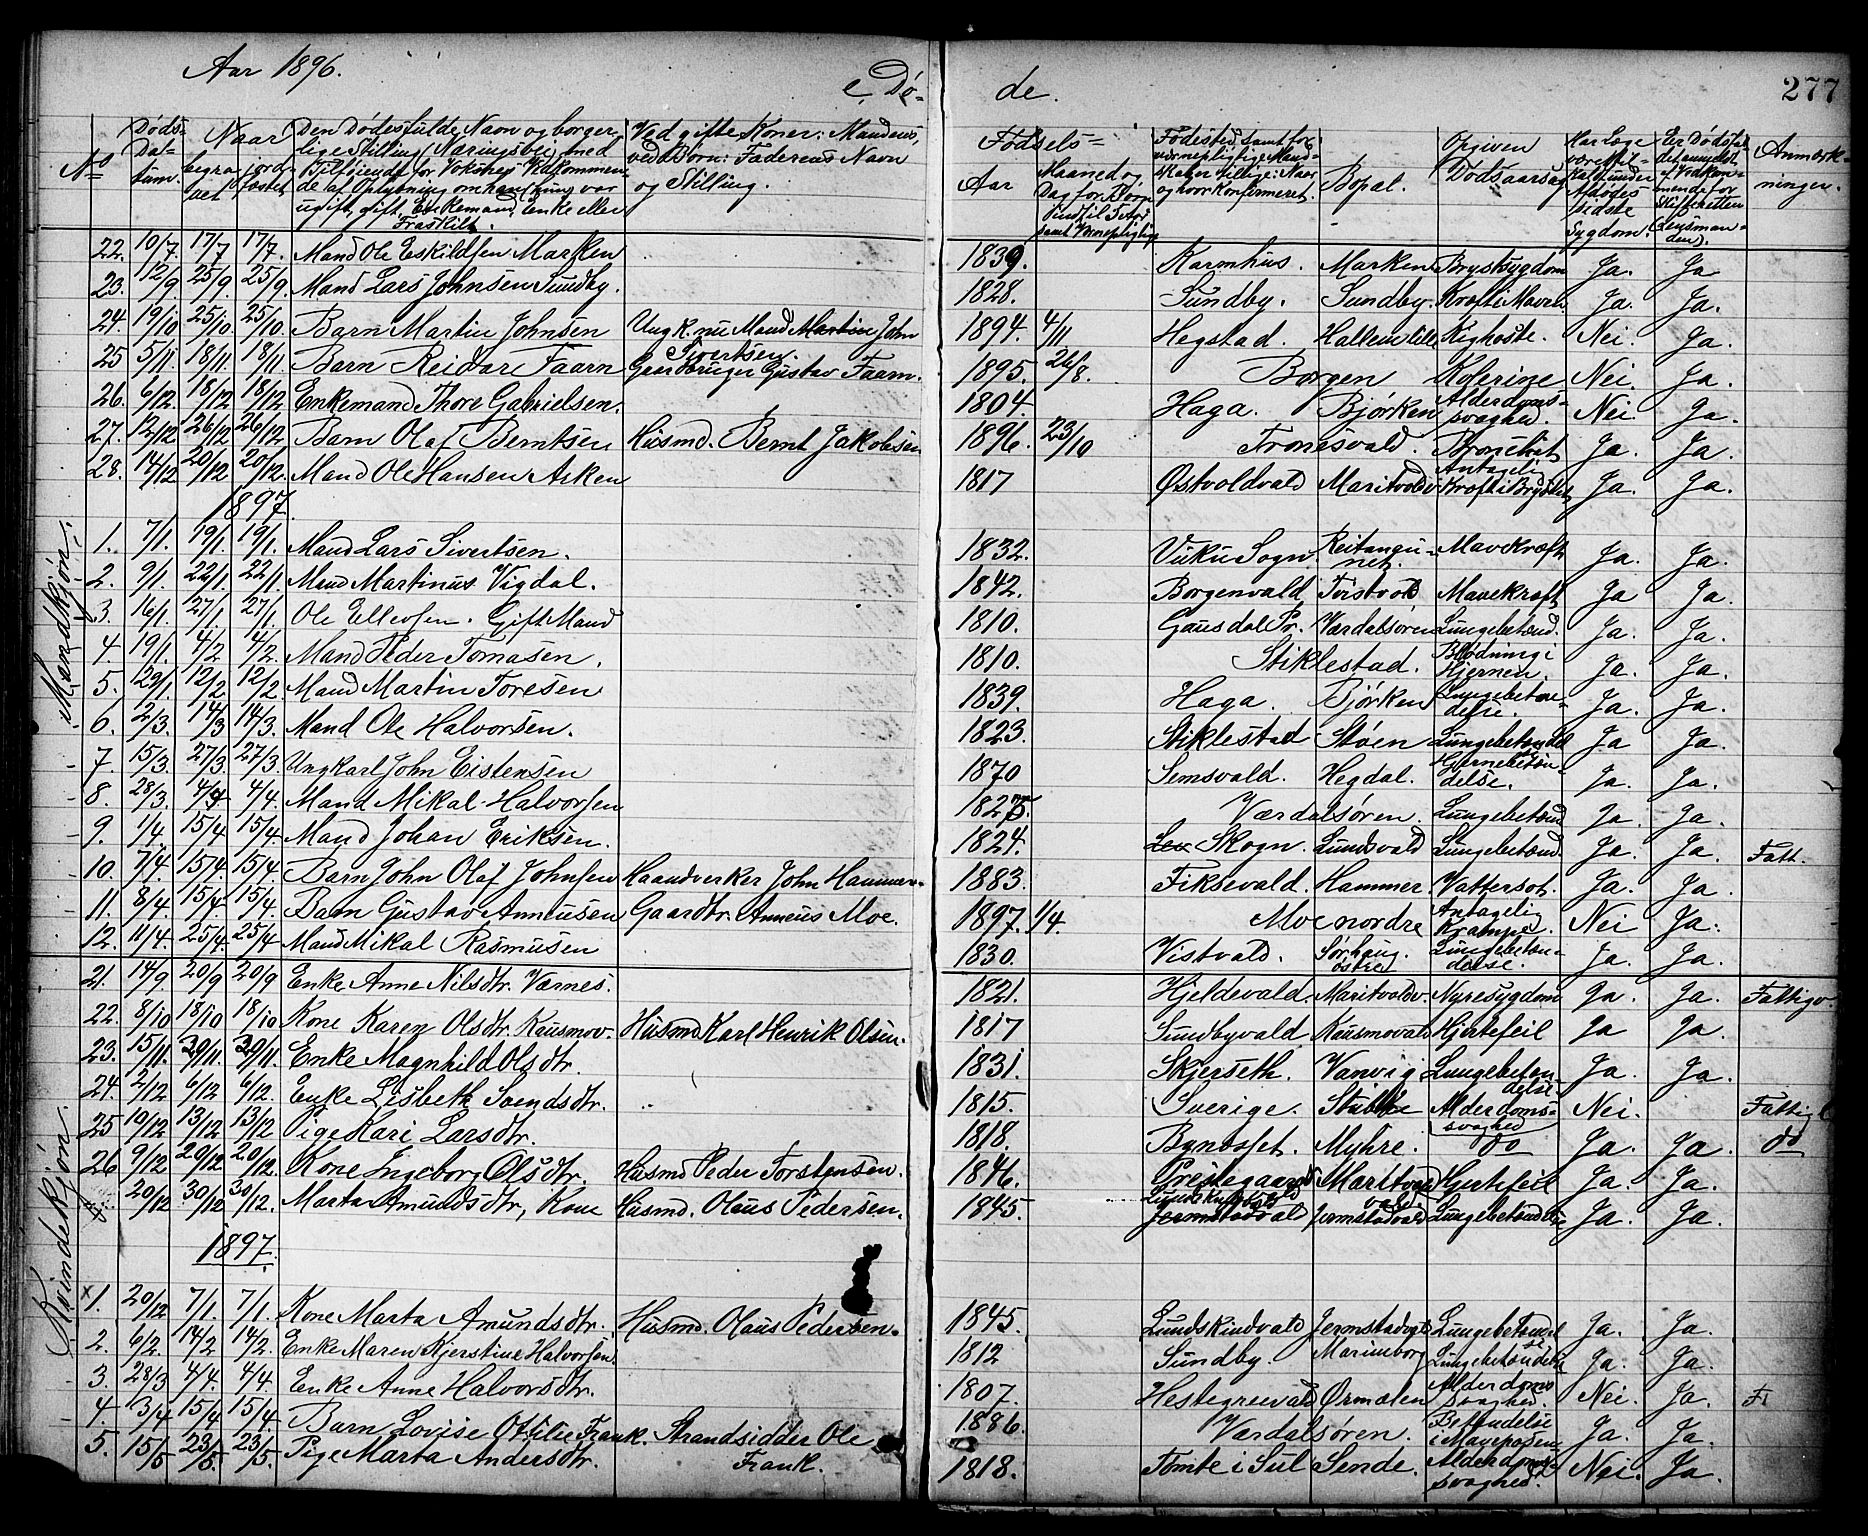 Aar 1896.
e, Dø-
de.
277
No
Døds-
Da-
tum.
Naar
begra-
vet
jord-
fæstet
Den Dødes fulde Navn og borger-
lige Stilling (Næringsvei) med
Tilføiende for Voksnes Vedkommen-
de af Oplysning om han (hun) var
ugift, gift, Enkemand, Enke eller
Fraskilt.
Ved gifte Koner: Mandens,
ved Børn: Faderens Navn
og Stilling.
Fødsels-
Aar
Maaned og
Dag for Børn
indtil 2 Aar
samt Vernepligtige
Fødested, samt for
vernepligtige Mand-
skaber tillige: Naar
og hvor konfirmeret.
Bopæl.
Opgiven
Dødsaarsag
Har Læge
været til-
kaldt under
Afdødes
sidste
Sygdom.
Er Dødsfal-
det anmeldt
af Vedkom-
mende for
Skifteretten
(Lensman-
den).
Anmærk-
ninger.
Mandkjøn.
22. 10/7 17/7 17/7. Mand Ole Eskildsen Marken 1839. Karmhus. Marken Brystsygdom Ja. Ja
23. 12/9 25/9 25/9. Mand Lars Johnsen Sundby. 1828. Sundby. Sundby. Kræft i Maven Ja. Ja.
24. 19/10 25/10. 25/10. Barn Martin Johnsen Ungk. nu Mand Martin John Sivertsen. 1894. 4/11 Hegstad. Hallemstille Kighoste. Nei. Ja.
25 5/11. 18/11 18/11 Barn Reidar Faarn Gaardbruger Gustav Faarn. 1895. 26/8. Borgen Kolerine Nei. Ja.
26. 6/12. 18/12 18/12 Enkemand Thore Gabrielsen. 1804. Haga. Bjørken Alderdoms-
svaghed. Nei Ja.
27. 12/12 26/12 26/12 Barn Olaf Berntsen Husmd. Bernt Jakobsen 1896. 23/10 Tronesvald. Bronchit Ja. Ja.
28. 14/12 20/12 20/12. Mand Ole Hansen Arken 1817 Østvoldvald Maritvoldv Antagelig
Kræft i Brystet Ja. Ja.
1897.
1. 7/1. 19/1 19/1. Mand Lars Sivertsen. 1832. Vuku Sogn. Reitangu-
net. Mavekræft Ja. Ja.
2. 9/1. 22/1 22/1 Mand Martinus Vigdal. 1842. Borgenvald Tirstvold Mavekræft Ja Ja.
3. 16/1. 27/1 27/1. Ole Ellevsen. Gift Mand 1810. Gausdal Pr. Værdalsøren Lungebetænd. Ja. Ja.
4. 19/1. 4/2 4/2. Mand Peder Tomasen. 1810. Stiklestad. Blødning i
Hjernen. Ja. Ja.
5. 29/1. 12/2 12/2. Mand Martin Toresen 1839. Haga. Bjørken Lungebetæn-
delse. Ja. Ja.
6. 2/3. 14/3 14/3. Mand Ole Halvorsen. 1823. Stiklestad Støen Lungebetænd Ja Ja.
7. 15/3. 27/3 27/3. Ungkarl John Eistensen 1870 Semsvald. Hegdal. Hjernebetæn-
delse. Ja. Ja.
8. 28/3. 4/4 4/4. Mand Mikal Halvorsen 1825. Værdalsøren. Lungebetænd Ja. Ja.
9. 1/4. 15/4 15/4. Mand Johan Eriksen. 1824. Lev Skogn. Lundsvald Lungebetænd. Ja. Ja. Fatt.
10. 7/4. 15/4 15/4 Barn John Olaf Johnsen Haandverker John Hammer. 1883. Fiksevald. Hammer. Vattersot. Ja. Ja.
11. 8/4 15/4. 15/4. Barn Gustav Anneusen Gaardbr. Anneus Moe. 1897. 1/4. Moe nordre Antagelig
Krampe. Nei Ja.
12. 11/4. 25/4 25/4 Mand Mikal Rasmusen 1830. Vistvald. Sørhaug.
østre Lungebetæn-
delse. Ja. Ja.
Kvindekjøn.
21. 14/9 20/9 20/9 Enke Anne Nilsdtr. Værnes. 1821. Hjeldevald. Maritvoldv. Nyresygdom Ja. Ja. Fattigv.
22. 8/10 18/10 18/10 Kone Karen Olsdtr. Kausmov. Husmd Karl Henrik Olsen. 1817 Sundbyvald Kausmovald Hjertefeil Ja Ja.
23. 15/11. 29/11. 29/11. Enke Magnhild Olsdtr. 1831. Skjerseth. Vanvig Lungebeten
delse Ja. Ja.
24. 2/12 6/12 6/12. Enke Lisbeth Svendsdtr. 1815. Sverige. Stubbe Alderdoms-
svaghed Nei. Fattigl
25 10/12 13/12 13/12 Pige Kari Larsdtr. 1818. Bynesset. Myhre. do Ja. Ja. do
26 9/12 20/12 20/12. Kone Ingeborg Olsdtr. Husmd Peder Torstensen. 1846. Prestegaards
vald Maritvold
vald Hjertefeil Ja. Ja.
20/12 30/12 30/12. Marta Amundsdtr, Kone Husmd. Olaus Pedersen. 1845. Lundskindvald
Jermstadvald Jermstadvald Lungebetændelse Ja. Ja.
1897.
x 1. 20/12 7/1. 7/1. Kone Marta Amundsdtr. Husmd. Olaus Pedersen. 1845. Lundskindvald Jermstadvald Lungebetændel
se Ja. Ja.
2. 6/2. 14/2 14/2. Enke Maren Kjerstine Halvorsen. 1812 Sundby. Marienborg Lungebetændelse Ja. Ja.
3. 28/3 4/4. 4/4. Enke Anne Halvorsdtr. 1807. Hestegreivald Ørmelen Alderdoms
svaghed. Nei. Ja. F
4. 3/4 15/4 15/4. Barn Lovise Otilie Frank. Strandsidder Ole
Frank. 1886. Værdalsøren. Betendelse
i Maveposen. Ja. Ja.
5. 15/5 23/5. 23/5. Pige Marta Andersdtr. 1818. Tomte i Sul Sende. Alderdoms-
svaghed. Nei. Ja.